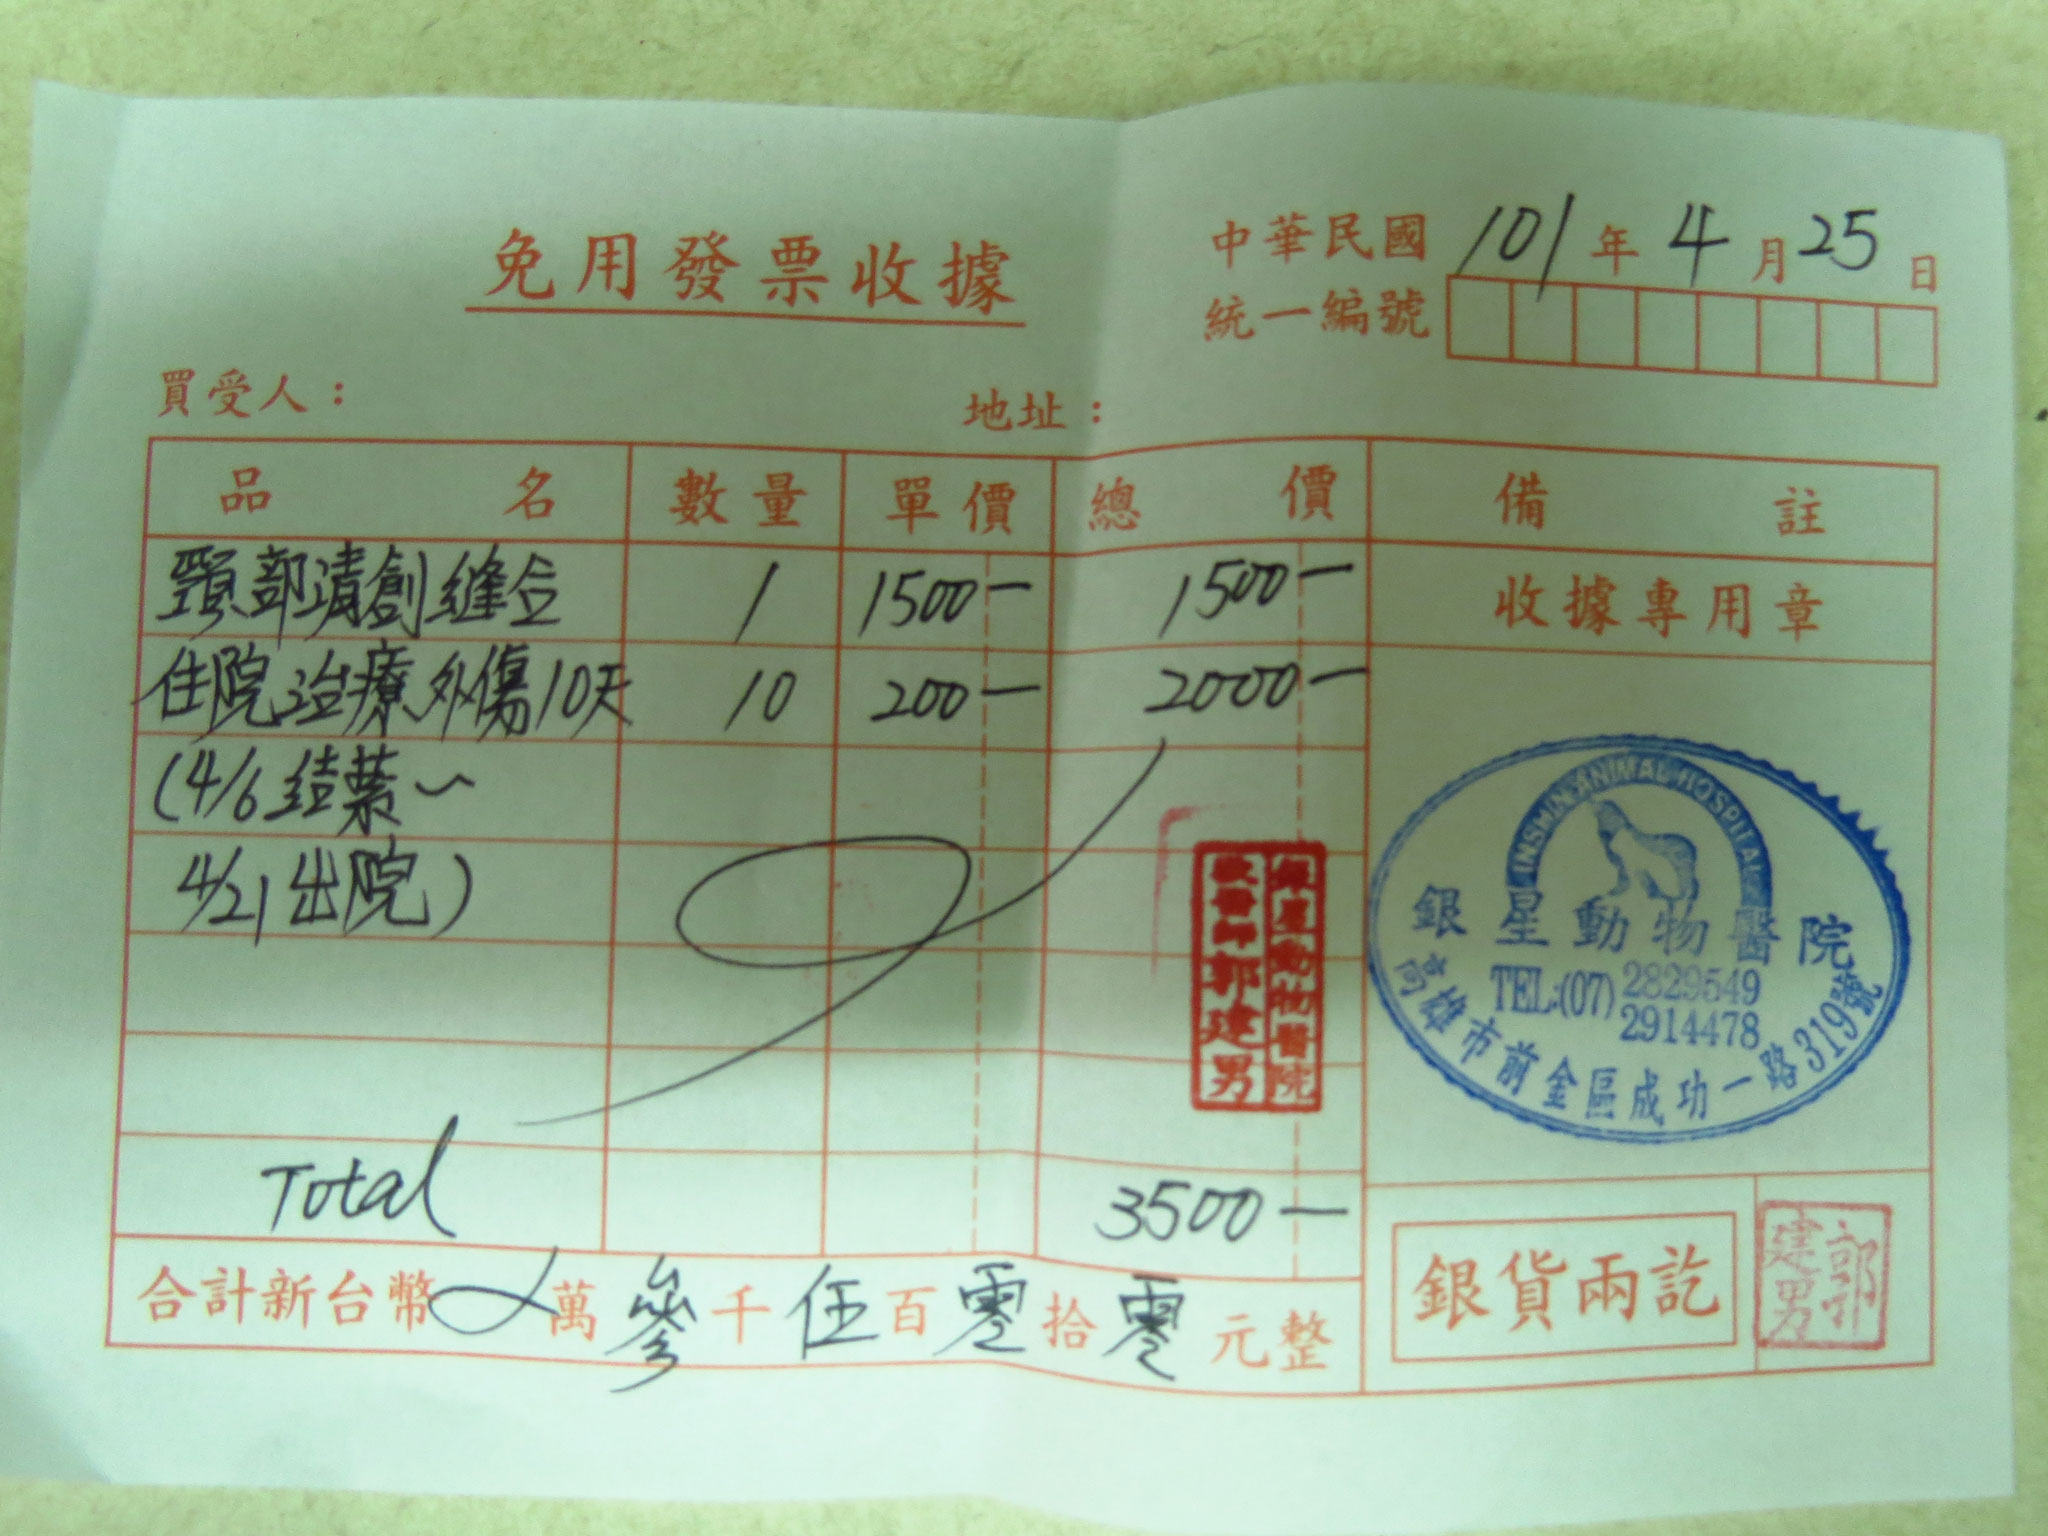 免用發票收據
中華民國 101 年 4 月 25 日
統一編號
買受人：
地址：
品名 數量 單價 總價 備註
頸部清創縫合 1 1500- 1500-
收據專用章
住院治療外傷10天 10 200- 2000-
(4/6結紮~
4/21出院)
INSHIN ANIMAL HOSPITAL
銀星動物醫院
TEL:(07) 2829549
2914478
高雄市前金區成功一路319號
銀星動物醫院
獸醫師郭建男
Total 3500-
合計新台幣 萬 參 千 伍 百 零 拾 零 元整
銀貨兩訖
郭建男